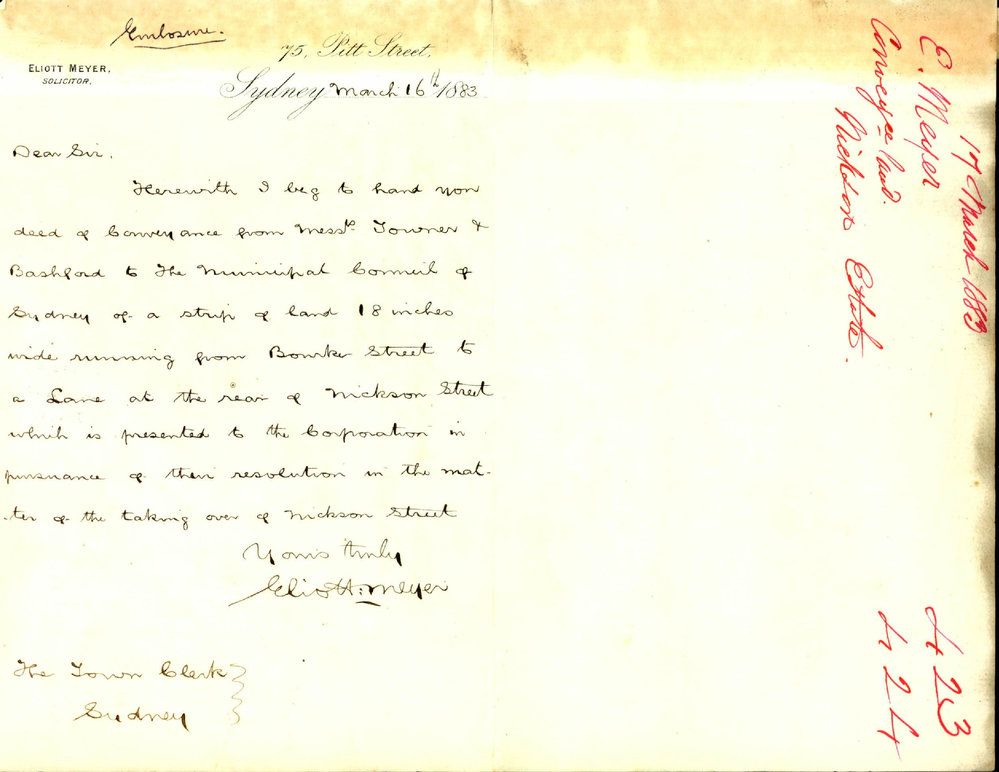 Enclosure.
75, Pitt Street.
ELIOTT MEYER,
SOLICITOR.
Sydney March 16th 1883
Dear Sir.
Herewith I beg to hand you
deed of Conveyance from Messrs. Towner &
Bashford to The Municipal Council of
Sydney of a strip of land 18 inches
wide running from Bourke Street to
a Lane at the rear of Nickson Street
which is presented to the Corporation in
pursuance of their resolution in the mat-
-ter of the taking over of Nickson Street
Yours truly
Eliott Meyer
The Town Clerk
Sydney
17 March 1883
E. Meyer
Conveyce land.
Nickson Estate.
423
424